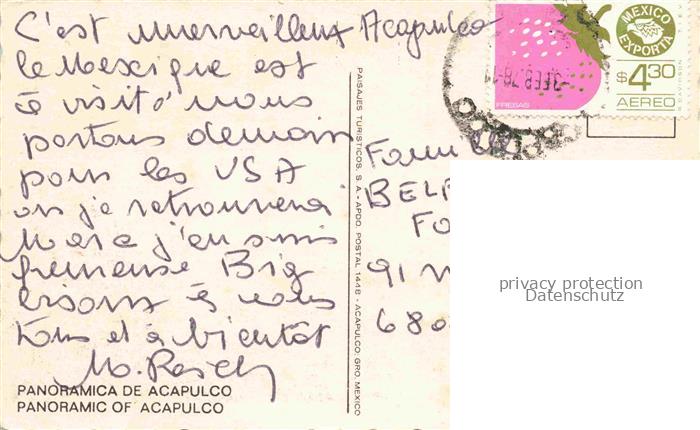 C'est merveilleux Acapulco
le Mexique est
à visité nous
partons demain
pour les USA
ou je retrouverai
Marc j'en suis
heureuse Big
bisous à vous
tous et à bientôt
M.
PANORAMICA DE ACAPULCO
PANORAMIC OF ACAPULCO
PAISAJES TURISTICOS, S. A. - APDO. POSTAL 1448 - ACAPULCO, GRO. MEXICO
MEXICO
EXPORTA
$4.30
AEREO
FRESAS
FEB. 78
Famille
BELF
Fo
91
680
privacy protection
Datenschutz